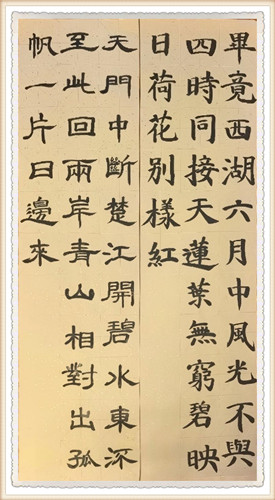 畢竟西湖六月中風光不與
四時同接天蓮葉無窮碧映
日荷花别樣紅
天門中斷楚江開碧水東流
至此回兩岸青山相對出孤
帆一片日邊來